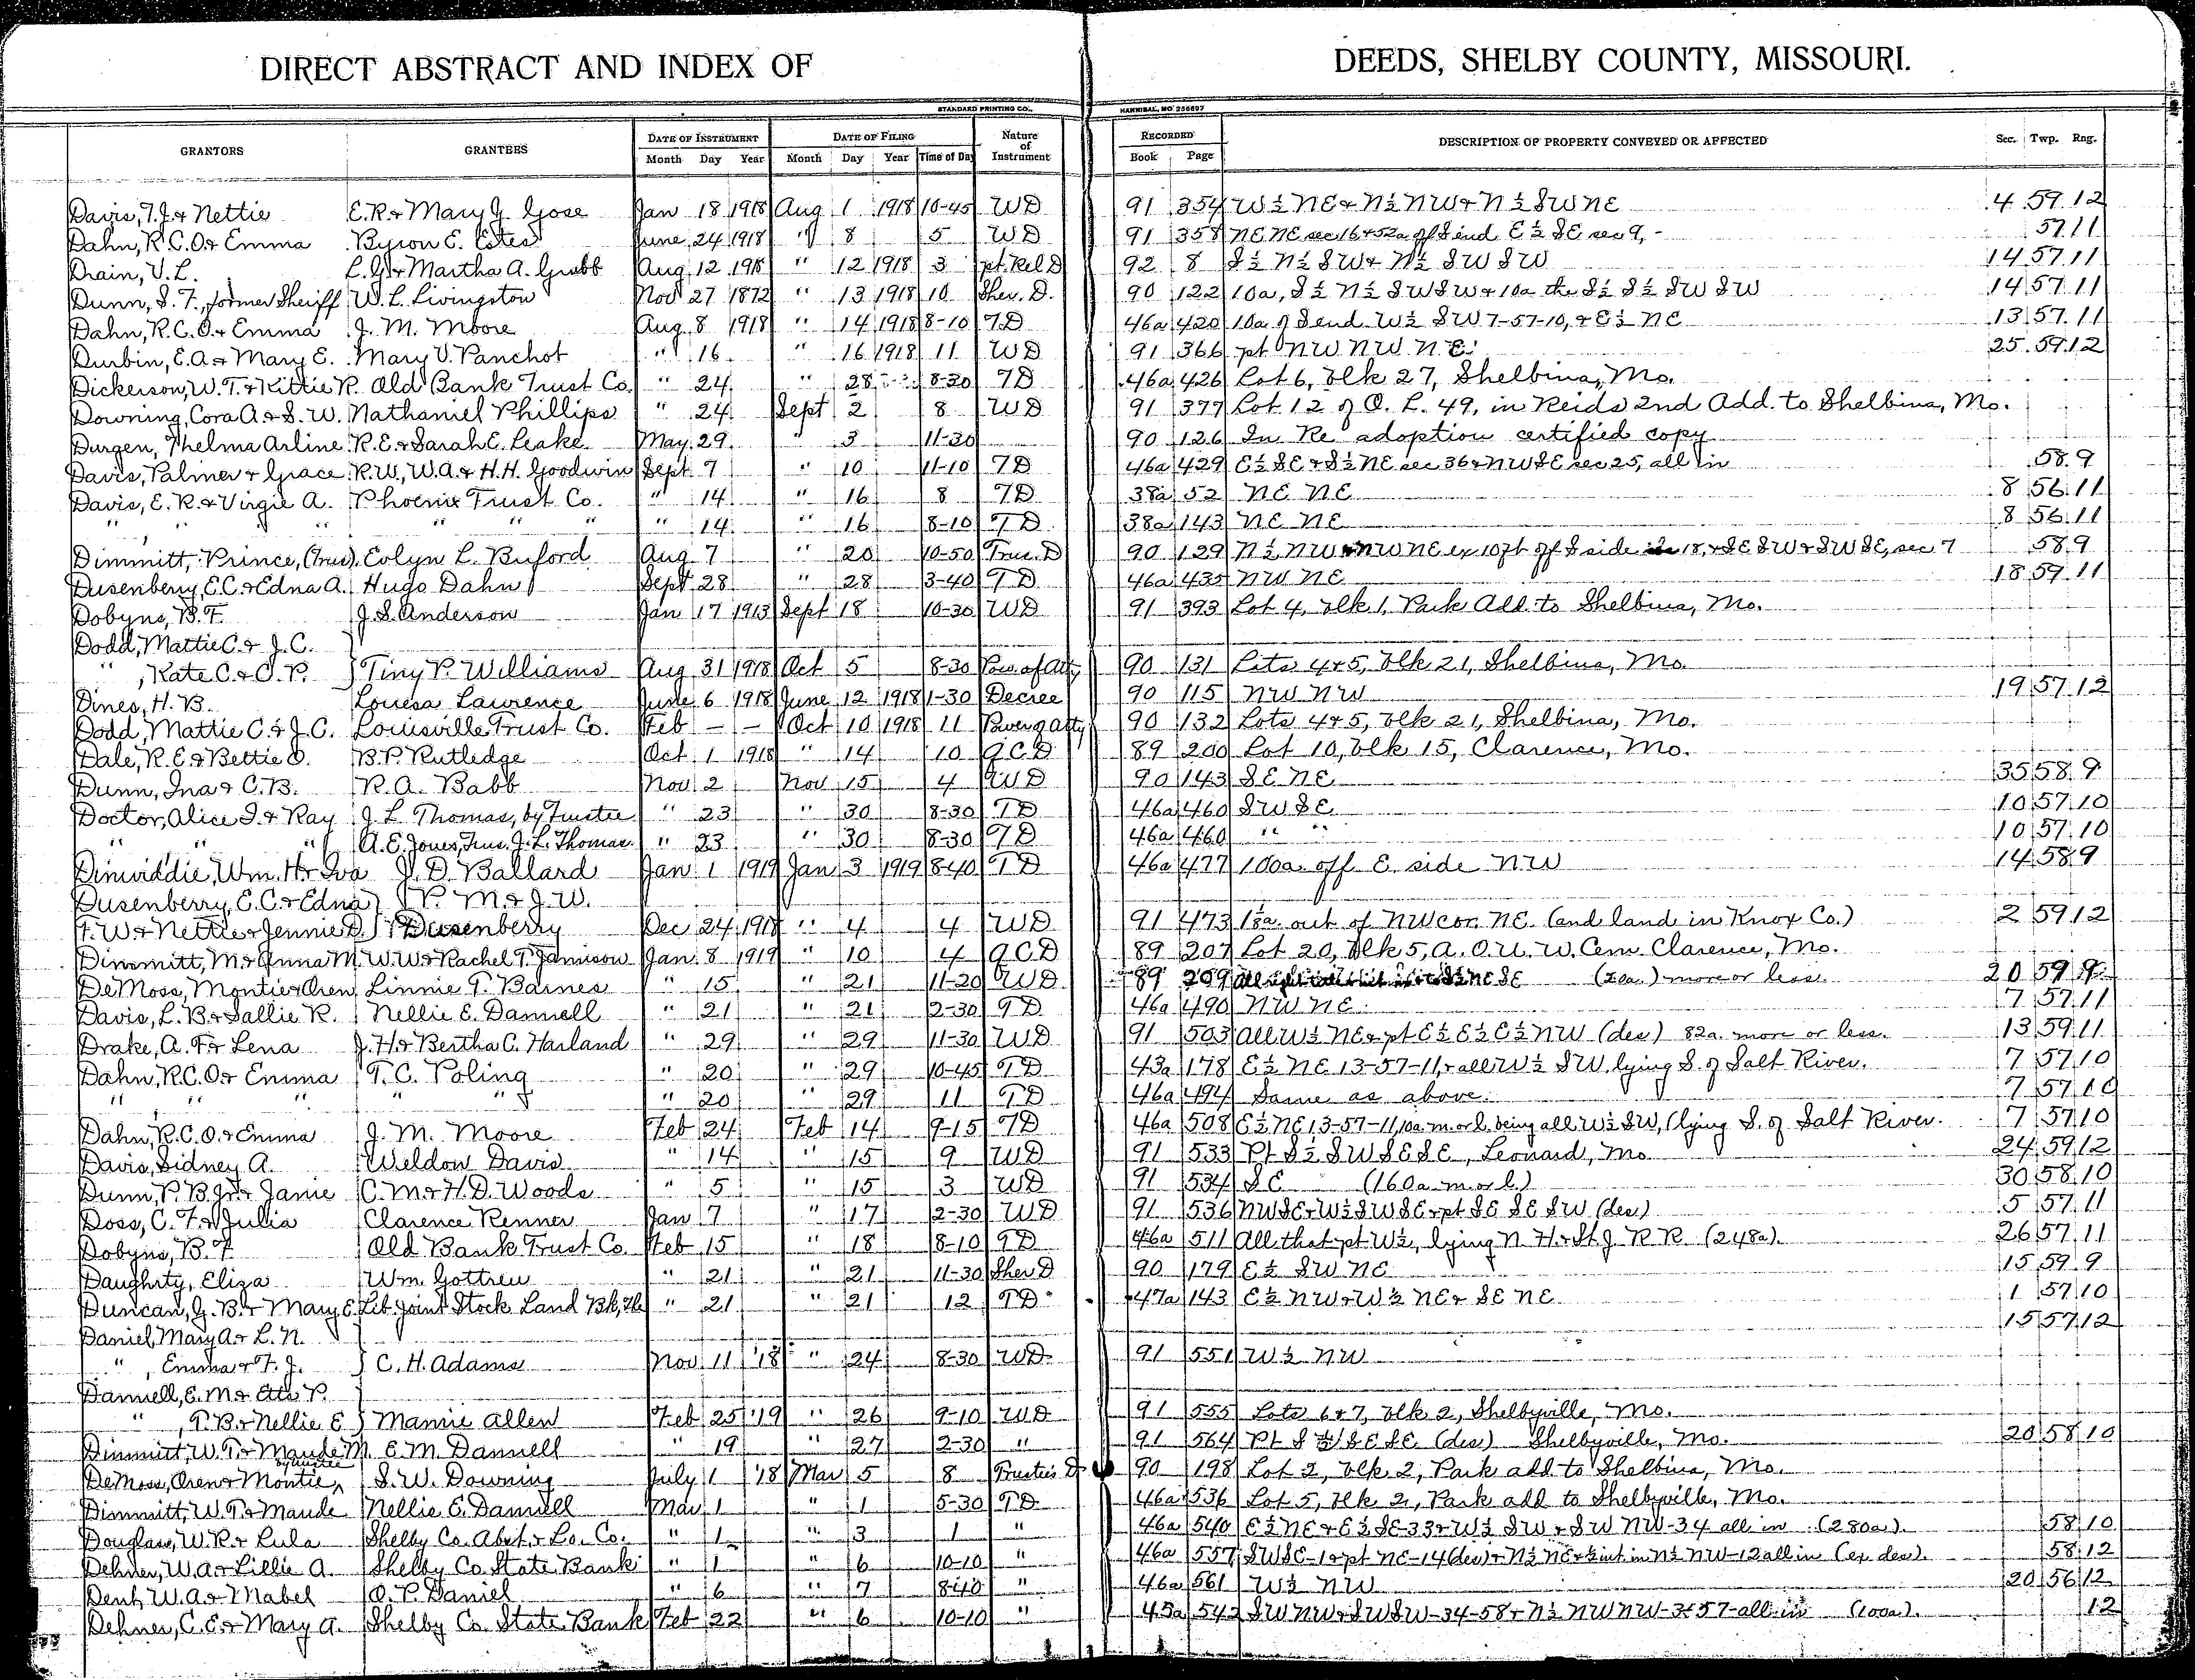 DIRECT ABSTRACT AND INDEX OF DEEDS, SHELBY COUNTY, MISSOURI.
STANDARD PRINTING CO., HANNIBAL, MO 256697
GRANTORS GRANTEES DATE OF INSTRUMENT DATE OF FILING Nature of Instrument RECORDED DESCRIPTION OF PROPERTY CONVEYED OR AFFECTED Sec. Twp. Rng.
Month Day Year Month Day Year Time of Day Book Page
Davis, T.J. & Nettie E.R. & Mary J. Gose Jan 18 1918 Aug 1 1918 10-45 WD 91 354 W½ NE & N½ NW & N½ SW NE 4 59 12
Dahn, R.C.O. & Emma Byron E. Estes June 24 1918 " 8 5 WD 91 358 NE NE sec 16 & 52a off S end E½ SE sec 9, - 57 11
Drain, V.L. L.G. & Martha A. Grubb Aug 12 1918 " 12 1918 3 pt. Rel D 92 8 S½ N½ SW & N½ SW SW 14 57 11
Dunn, S.F., former Sheriff W.L. Livingston Nov 27 1872 " 13 1918 10 Sher. D. 90 122 10a, S½ N½ SW SW & 10a the S½ S½ SW SW 14 57 11
Dahn, R.C.O. & Emma J.M. Moore Aug 8 1918 " 14 1918 8-10 TD 46a 420 10a of S end W½ SW 7-57-10, & E½ NE 13 57 11
Durbin, E.A. & Mary E. Mary V. Panchot " 16 " 16 1918 11 WD 91 366 pt NW NW NE 25 59 12
Dickerson, W.T. & Kittie R. Old Bank Trust Co. " 24 " 28 8-30 TD 46a 426 Lot 6, Blk 27, Shelbina, Mo.
Downing, Cora A. & S.W. Nathaniel Phillips " 24 Sept 2 8 WD 91 377 Lot 12 of O. L. 49, in Reids 2nd Add. to Shelbina, Mo.
Durgen, Thelma Arline R.E. & Sarah E. Leake May 29 " 3 11-30 90 126 In Re adoption certified copy
Davis, Palmer & Grace R.W., W.A. & H.H. Goodwin Sept 7 " 10 11-10 TD 46a 429 E½ SE & S½ NE sec 36 & NW SE sec 25, all in 58 9
Davis, E.R. & Virgie A. Phoenix Trust Co. " 14 " 16 8 TD 38a 52 NE NE 8 56 11
" " " " " " " 14 " 16 8-10 TD 38a 143 NE NE 8 56 11
Dimmitt, Prince, (Trus), Evlyn L. Buford Aug 7 " 20 10-50 Trus. D 90 129 N½ NW & NW NE ex 10 ft off S side 18, & SE SW & SW SE, sec 7 58 9
Dusenberry, E.C. & Edna A. Hugo Dahn Sept 28 " 28 3-40 TD 46a 435 NW NE 18 59 11
Dobyns, B.F. J.S. Anderson Jan 17 1913 Sept 18 10-30 WD 91 393 Lot 4, Blk 1, Park Add. to Shelbina, Mo.
Dodd, Mattie C. & J.C. }
" , Kate C. & O.P. } Tiny P. Williams Aug 31 1918 Oct 5 8-30 Pow. of Atty 90 131 Lots 4 & 5, Blk 21, Shelbina, Mo.
Dines, H.B. Louesa Lawrence June 6 1918 June 12 1918 1-30 Decree 90 115 NW NW 19 57 12
Dodd, Mattie C. & J.C. Louisville Trust Co. Feb — — Oct 10 1918 11 Power of Atty 90 132 Lots 4 & 5, Blk 21, Shelbina, Mo.
Dale, R.E. & Bettie O. B.P. Rutledge Oct 1 1918 " 14 10 QCD 89 200 Lot 10, Blk 15, Clarence, Mo.
Dunn, Ina & C.B. R.A. Babb Nov 2 Nov 15 4 WD 90 143 SE NE 35 58 9
Doctor, Alice I. & Ray J.L. Thomas, by Trustee " 23 " 30 8-30 TD 46a 460 SW SE 10 57 10
" " " A.E. Jones, Trus. J.L. Thomas " 23 " 30 8-30 TD 46a 460 " " 10 57 10
Dinwiddie, Wm. H. & Iva J.D. Ballard Jan 1 1919 Jan 3 1919 8-40 TD 46a 477 100a. off E. side NW 14 58 9
Dusenberry, E.C. & Edna } P.M. & J.W.
F.W. & Nettie & Jennie D. } Dusenberry Dec 24 1918 " 4 4 WD 91 473 1⅛a out of NW cor. NE. (and land in Knox Co.) 2 59 12
Dimmitt, M. & Anna M. W.W. & Rachel T. Jamison Jan. 8 1919 " 10 4 QCD 89 207 Lot 20, Blk 5, A.O.U.W. Cem. Clarence, Mo.
DeMoss, Montie & Oren Linnie T. Barnes " 15 " 21 11-20 WD 89 209 NE SE (2a.) more or less. 20 59 9
Davis, L.B. & Sallie R. Nellie E. Dannell " 21 " 21 2-30 TD 46a 490 NW NE 7 57 11
Drake, A.F. & Lena J.H. & Bertha C. Harland " 29 " 29 11-30 WD 91 503 All W½ NE & pt E½ E½ E½ NW (des) 82a. more or less. 13 59 11
Dahn, R.C.O. & Emma T.C. Poling " 20 " 29 10-45 TD 43a 178 E½ NE 13-57-11, & all W½ SW lying S. of Salt River. 7 57 10
" " " " " " 20 " 29 11 TD 46a 494 Same as above. 7 57 10
Dahn, R.C.O. & Emma J.M. Moore Feb 24 Feb 14 9-15 TD 46a 508 E½ NE 13-57-11, 10a m. or l. being all W½ SW, (lying S. of Salt River. 7 57 10
Davis, Sidney A. Weldon Davis " 14 " 15 9 WD 91 533 Pt S½ SW SE SE, Leonard, Mo 24 59 12
Dunn, P.B. Jr. & Janie C.M. & H.D. Woods " 5 " 15 3 WD 91 534 SE (160a. m. or l.) 30 58 10
Doss, C.F. & Julia Clarence Renner Jan 7 " 17 2-30 WD 91 536 NW SE & W½ SW SE & pt SE SE SW (des) 5 57 11
Dobyns, B.F. Old Bank Trust Co. Feb 15 " 18 8-10 TD 46a 511 All that pt W½, lying N. H. & St. J. R R. (248a). 26 57 11
Daughrty, Eliza Wm. Gottren " 21 " 21 11-30 Sher D 90 179 E½ SW NE 15 59 9
Duncan, J.B. & Mary E. Lib. Joint Stock Land Bk, The " 21 " 21 12 TD 47a 143 E½ NW & W½ NE & SE NE 1 57 10
Daniel, Mary A. & L.N. } 15 57 12
" , Emma & F.J. } C.H. Adams Nov 11 '18 " 24 8-30 WD 91 551 W½ NW
Dannell, E.M. & Etta P. }
" , P.B. & Nellie E } Mamie Allen Feb 25 '19 " 26 9-10 WD 91 555 Lots 6 & 7, Blk 2, Shelbyville, Mo.
Dimmitt, W.T. & Maude M. E.M. Dannell " 19 " 27 2-30 " 91 564 Pt S ½ SE SE (des) Shelbyville, Mo. 20 58 10
DeMoss, Oren & Montie, by trustee S.W. Downing July 1 '18 Mar 5 8 Trustee's D 90 198 Lot 2, Blk 2, Park add to Shelbina, Mo.
Dimmitt, W.T. & Maude Nellie E. Dannell Mar 1 " 1 5-30 TD 46a 536 Lot 5, Blk 2, Park add to Shelbyville, Mo.
Douglass, W.R. & Lula Shelby Co. Abst. & Lo. Co. " 1 " 3 1 " 46a 540 E½ NE & E½ SE-33 & W½ SW & SW NW-34 all in (280a). 58 10
Dehner, W.A. & Lillie A. Shelby Co. State Bank " 1 " 6 10-10 " 46a 557 SW SE-1 & pt NE-14 (des) & N½ NE & ½ int in N½ NW-12 all in (ex des). 58 12
Dent, W.A. & Mabel O.P. Daniel " 6 " 7 8-40 " 46a 561 W½ NW 20 56 12
Dehner, C.E. & Mary A. Shelby Co. State Bank Feb 22 " 6 10-10 " 45a 542 SW NW & SW SW-34-58 & N½ NW NW-3-57-all in (100a). 12